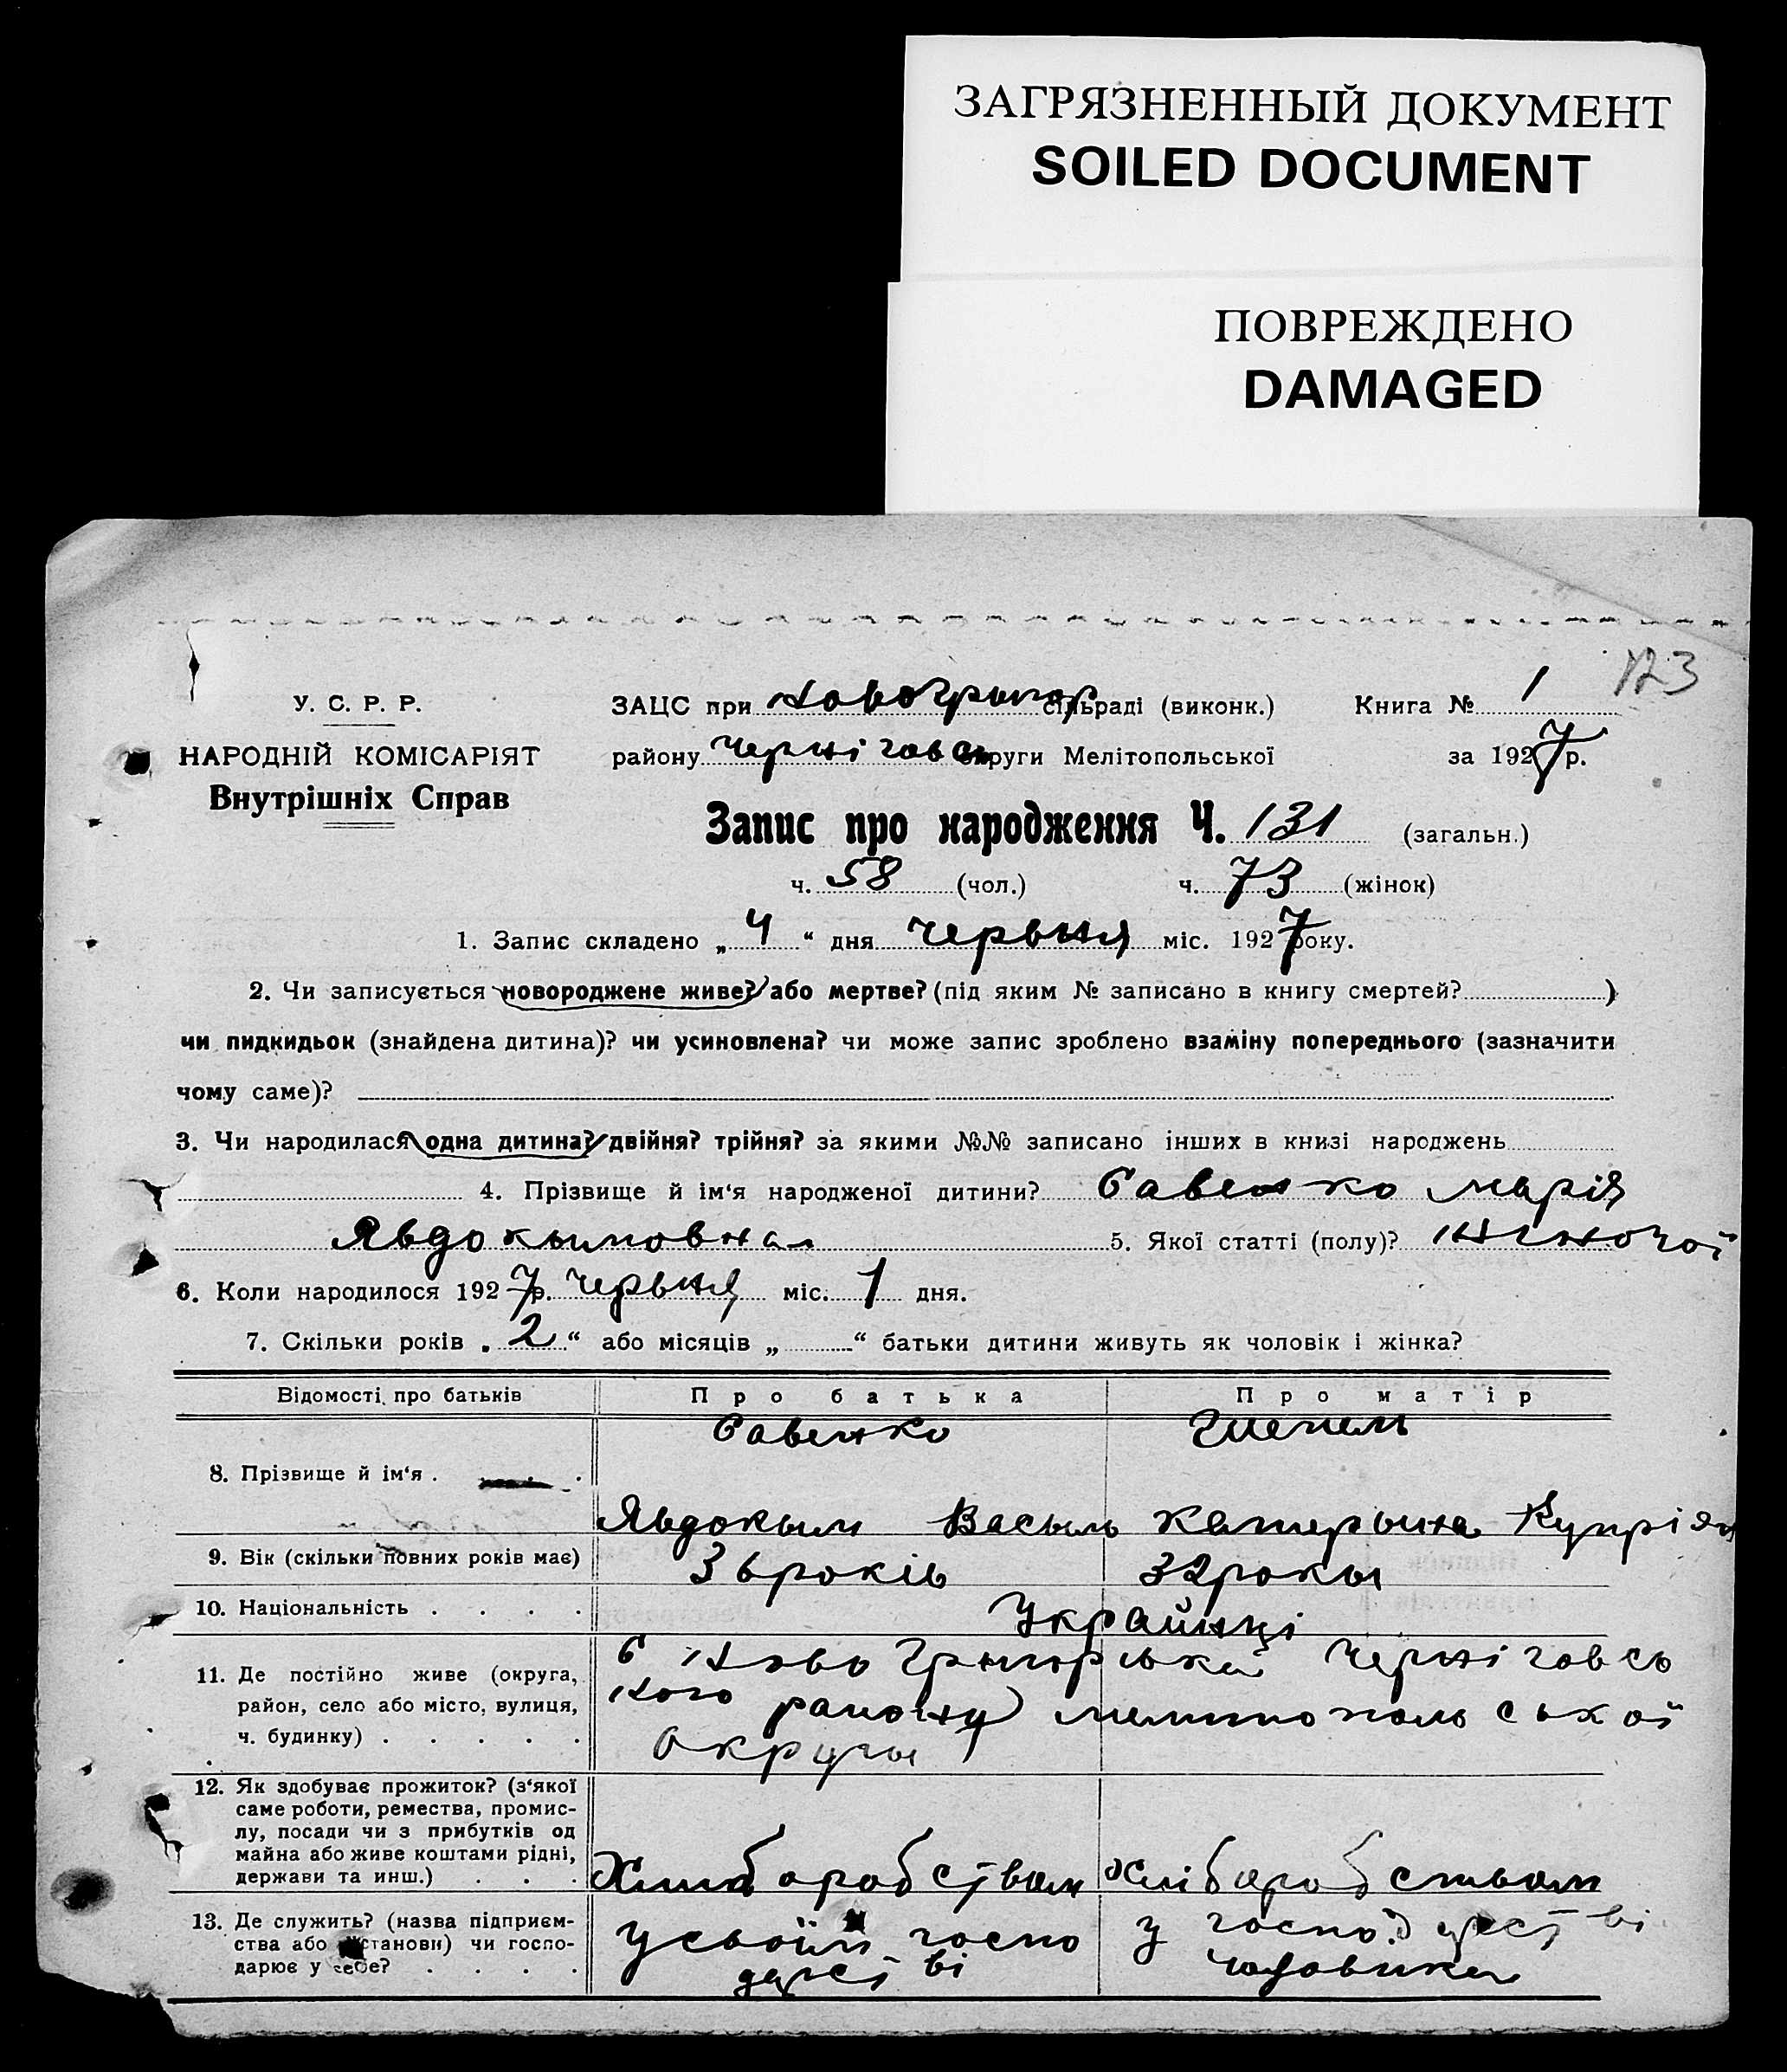 ЗАГРЯЗНЕННЫЙ ДОКУМЕНТ
SOILED DOCUMENT
ПОВРЕЖДЕНО
DAMAGED
123
У. С. Р. Р.
НАРОДНІЙ КОМІСАРІЯТ
Внутрішніх Справ
ЗАЦС при Новогригор сільраді (виконк.) Книга № 1
району Черніговськ округи Мелітопольської за 1927 р.
Запис про народження Ч. 131 (загальн.)
ч. 58 (чол.) ч. 73 (жінок)
1. Запис складено „ 4 “ дня червня міс. 1927 року.
2. Чи записується новороджене живе? або мертве? (під яким № записано в книгу смертей? )
чи пидкидьок (знайдена дитина)? чи усиновлена? чи може запис зроблено взаміну попереднього (зазначити
чому саме)?
3. Чи народилася одна дитина? двійня? трійня? за якими №№ записано інших в книзі народжень
4. Прізвище й ім‘я народженої дитини? Савенко Марія
Явдокымовна 5. Якої статті (полу)? жіночої
6. Коли народилося 1927 р. червня міс. 1 дня.
7. Скільки років „ 2 “ або місяців „ “ батьки дитини живуть як чоловік і жінка?
Відомості про батьків Про батька Про матір
Савенко Шепель
8. Прізвище й ім‘я .
Явдокым Васыль Катерына Купріян
9. Вік (скільки повних років має) 36 років 32 рокы
10. Національність . . . . Украйнці
11. Де постійно живе (округа,
район, село або місто, вулиця,
ч. будинку) . . . . .
С Ново Григорівка Черніговсь
кого району мелитопольської
округы
12. Як здобуває прожиток? (з‘якої
саме роботи, ремества, промис-
лу, посади чи з прибутків од
майна або живе коштами рідні,
держави та инш.) . . .
Хлиборобством Хліборобством
13. Де служить? (назва підприєм-
ства або установи) чи госпо-
дарює у себе? . . . .
у своїм госпо
дарстві
у господарстві
чоловика